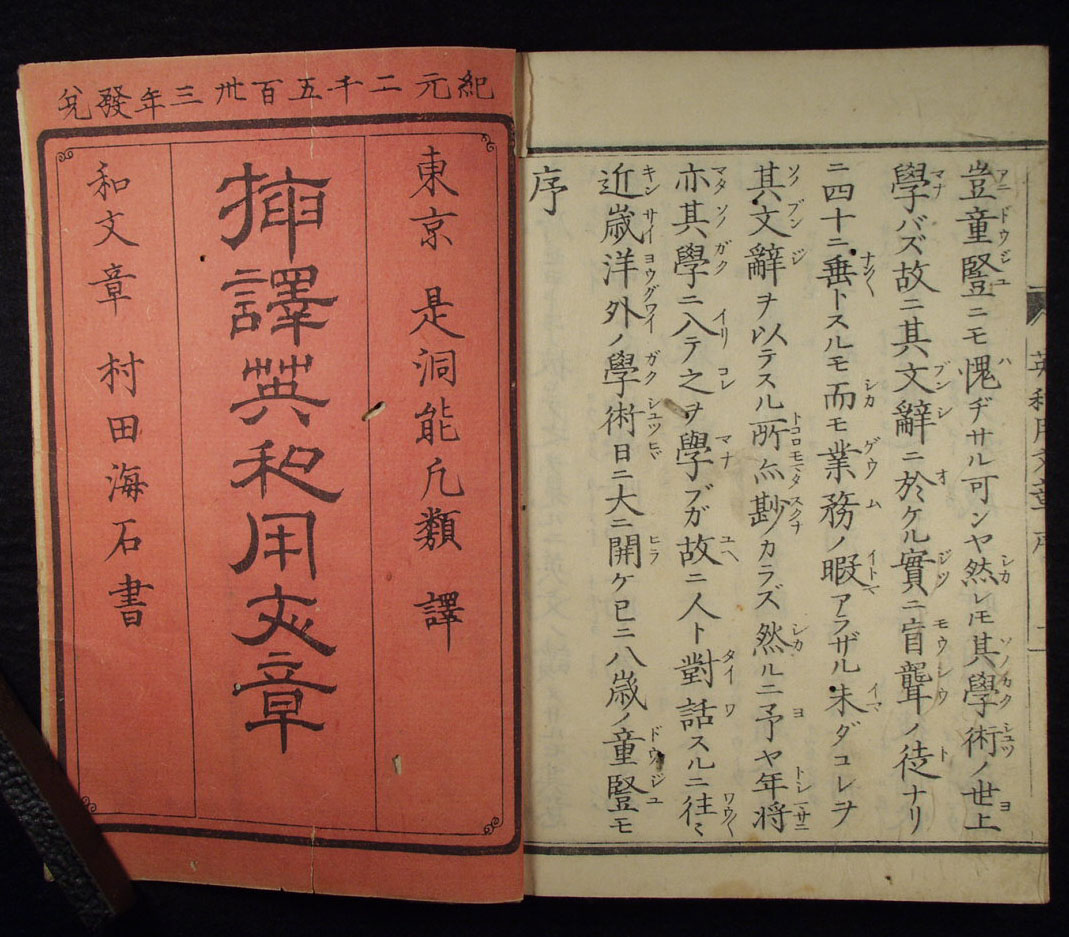 紀元二千五百卅三年發兌
東京 是洞能凡類 譯
挿譯英和用文章
和文章 村田海石書
序
近歳洋外ノ學術日ニ大ニ開ケ已ニ八歳ノ童豎モ
亦其學ニ入テ之ヲ學ブガ故ニ人ト對話スルニ往〻
其文辭ヲ以テスル所亦尠カラズ然ルニ予ヤ年將
ニ四十ニ垂トスルモ而モ業務ノ暇アラザル未ダコレヲ
學バズ故ニ其文辭ニ於ケル實ニ盲聾ノ徒ナリ
豈童豎ニモ愧ヂサル可ンヤ然レ𪜈其學術ノ世上
英和用文章序